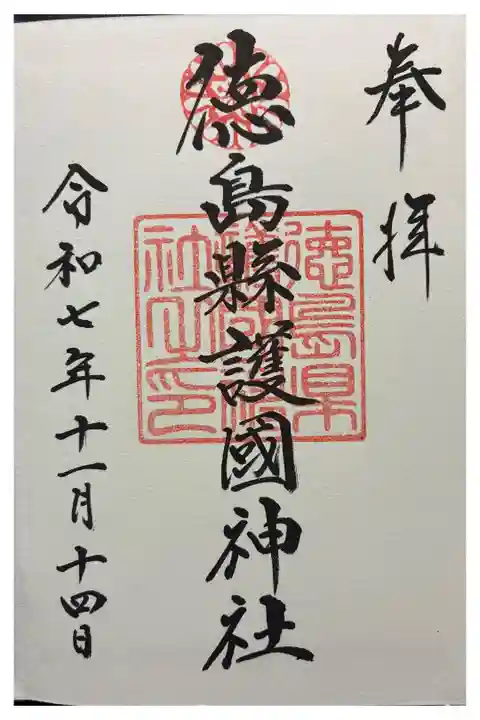 奉拝
徳島縣護國神社
徳島県護国神社之印
令和七年十一月十四日